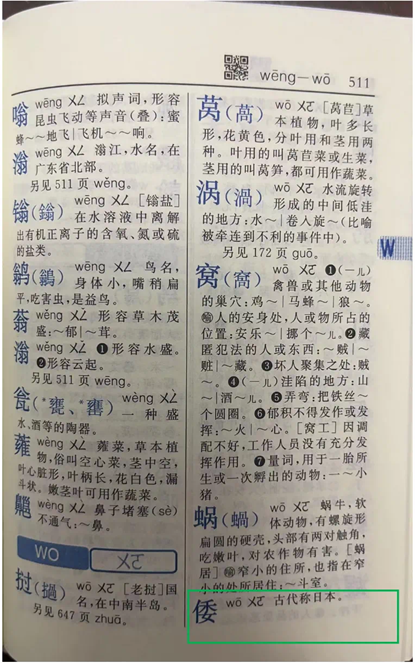 wēng—wō 511
嗡 wēng ㄨㄥ 拟声词,形容
昆虫飞动等声音(叠):蜜
蜂~~地飞|飞机~~响。
滃 wēng ㄨㄥ 滃江,水名,在
广东省北部。
另见 511 页 wěng。
鎓(鎓) wēng ㄨㄥ [鎓盐]
在水溶液中离解
出有机正离子的含氧、氮或硫
的盐类。
鹟(鶲) wēng ㄨㄥ 鸟名,
身体小,嘴稍扁
平,吃害虫,是益鸟。
蓊 wěng ㄨㄥ 形容草木茂
盛:~郁|~茸。
滃 wěng ㄨㄥ ❶形容水盛。
❷形容云起。
另见 511 页 wēng。
瓮(*甕、*罋) wèng ㄨㄥ
一种盛
水、酒等的陶器。
蕹 wèng ㄨㄥ 蕹菜,草本植
物,俗叫空心菜,茎中空,
叶心脏形,叶柄长,花白色,漏
斗状。嫩茎叶可用作蔬菜。
齆 wèng ㄨㄥ 鼻子堵塞(sè)
不通气:~鼻。
WO ㄨㄛ
挝(撾) wō ㄨㄛ [老挝]国
名,在中南半岛。
另见 647 页 zhuā。
莴(萵) wō ㄨㄛ [莴苣]草
本植物,叶多长
形,花黄色,分叶用和茎用两
种。叶用的叫莴苣菜或生菜,
茎用的叫莴笋,都可用作蔬菜。
涡(渦) wō ㄨㄛ 水流旋转
形成的中间低洼
的地方:水~|卷入旋~(比喻
被牵连到不利的事件中)。
另见 172 页 guō。
窝(窩) wō ㄨㄛ ❶(一儿)
禽兽或其他动物
的巢穴:鸡~|马蜂~|狼~。
喻人的安身处,人或物所占的
位置:安乐~|挪个~儿。❷藏
匿犯法的人或东西:~贼|~
赃|~藏。❸坏人聚集之处:贼
~。❹(一儿)洼陷的地方:山
~|酒~儿。❺弄弯:把铁丝~
个圆圈。❻郁积不得发作或发
挥:~火|~心。[窝工]因调
配不好,工作人员没有充分发
挥作用。❼量词,用于一胎所
生或一次孵出的动物:一~小
猪。
蜗(蝸) wō ㄨㄛ 蜗牛,软
体动物,有螺旋形
扁圆的硬壳,头部有两对触角,
吃嫩叶,对农作物有害。[蜗
居]喻窄小的住所,也指在窄
小的处所居住:~斗室。
倭 wō ㄨㄛ 古代称日本。
W